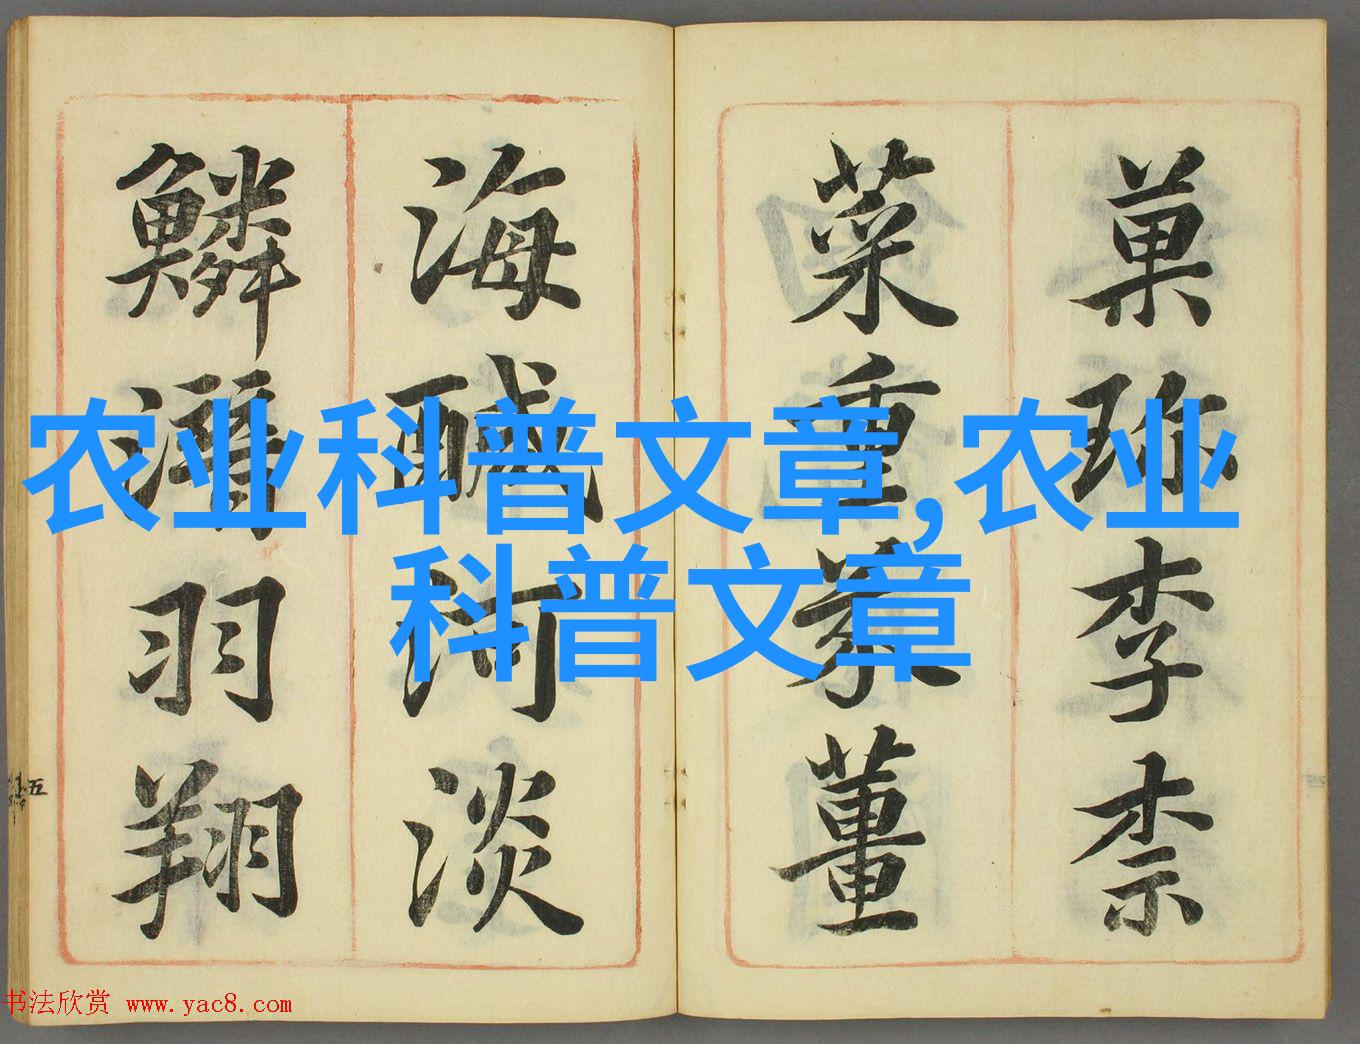 菓珎李柰
菜重芥薑
海醎河淡
鱗潛羽翔
五
农业科普文章,农业
科普文章
书法欣赏 www.yac8.com